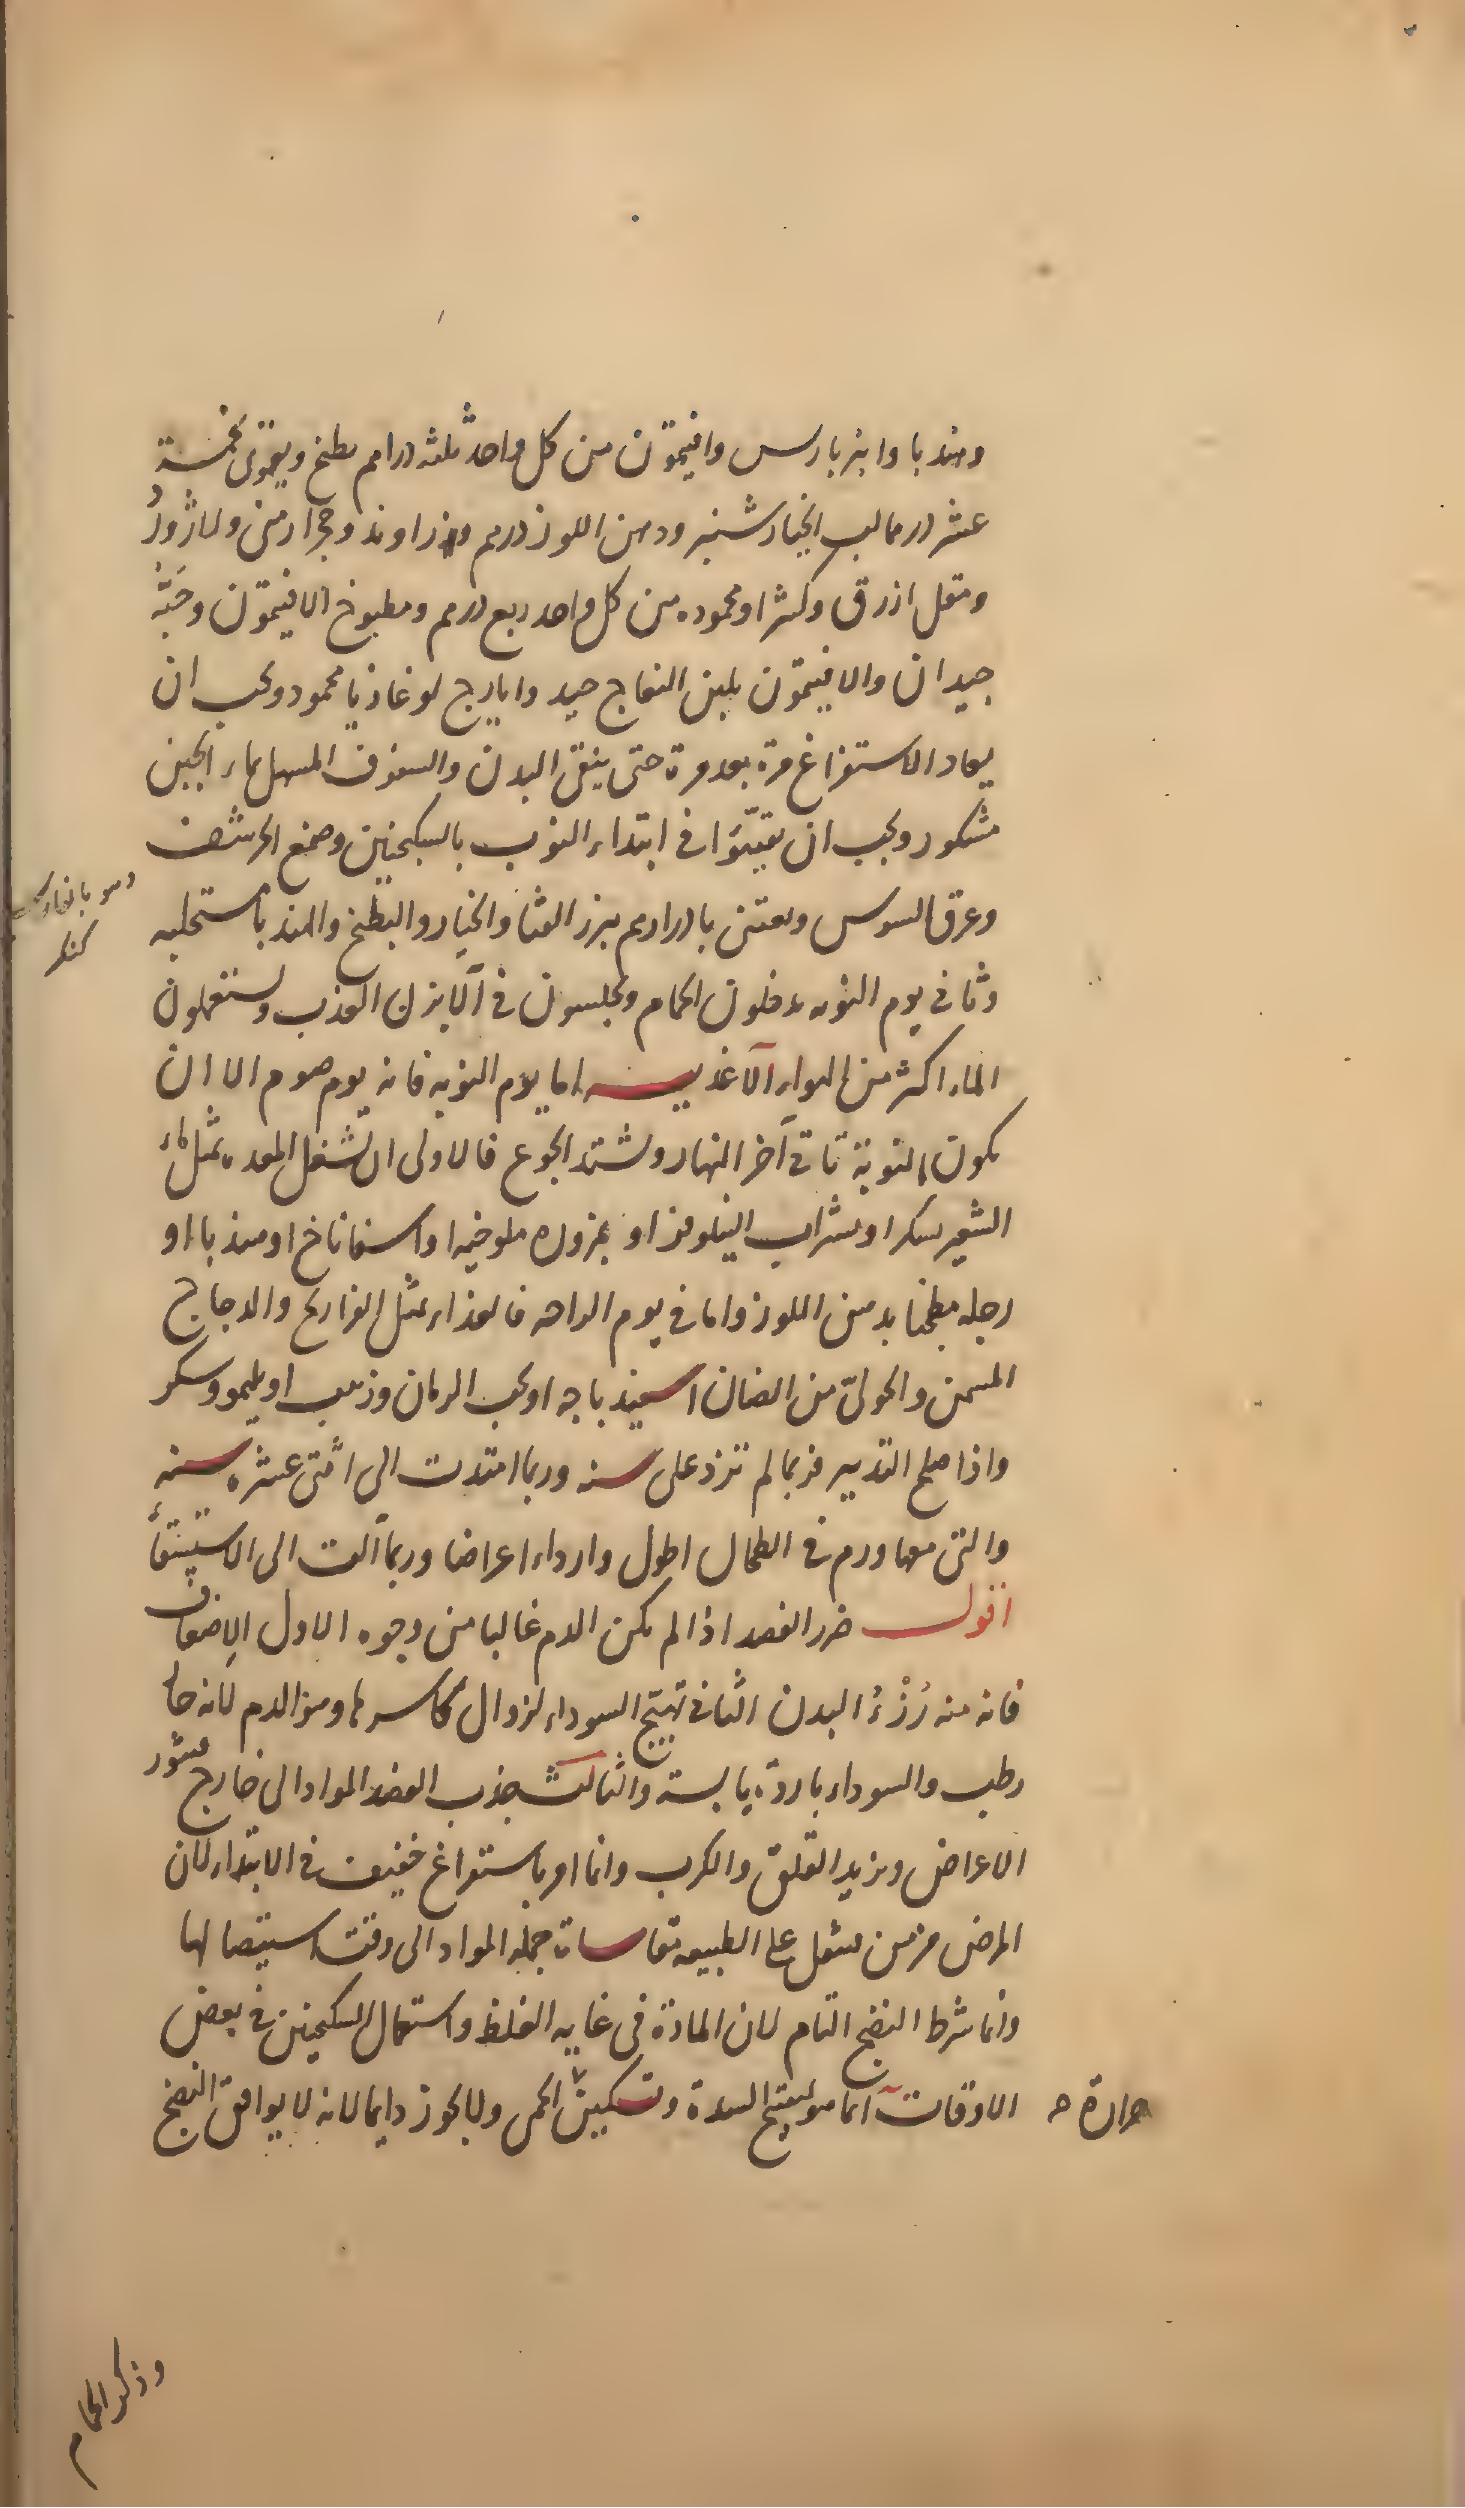 وهندبا وانبرباريس وافيتمون من كل واحد ثلثه دراهم يطبخ ويقوى بخمسة
عشر درهما لب الخيارشنبر ودهن اللوز درهم وراوند وحجر ارمني ولازورد
ومقل ازرق وكثيرا ومحموده من كل واحد ربع درهم ومطبوخ الافيتمون وحبه
جيدان والافيتمون بلبن النعاج جيد وايارج لوغاذيا محمود ويجب ان
يعاد الاستفراغ مرة بعد مرة حتى ينقى البدن والسفوف المسهل بماء الجبن
مشكور ويجب ان يقيئوا في ابتداء النوب بالسكنجبين وصمغ الحرشف
وعرق السوس ويعتنى بادرارهم ببزر القثا والخيار والبطيخ والهندبا مستحلبه
وثاني يوم النوبه يدخلون الحمام ويجلسون في الآبزن العذب ويستعملون
الماء اكثر من الهواء الاغذيه اما يوم النوبه فانه يوم صوم الا ان
يكون النوبة تاتي آخر النهار ويشتد الجوع فالاولى ان يشغل المعده بمثل ماء
الشعير بسكر او بشراب النيلوفر او بمزوره ملوخيه او اسفاناخ او هندباء او
رجله مطجنا بدهن اللوز واما في يوم الراحه فالغذاء بمثل الفراريج والدجاج
المسمن والحولي من الضان اسفيدباجه او بحب الرمان وزبيب او بليمو وسكر
واذا صلح التدبير فربما لم تزد على سنه وربما امتدت الى اثنتى عشره سنه
والتى معها ورم في الطحال اطول واردا اعراضا وربما آلت الى الاستسقاء
اقول ضرر الفصد اذا لم يكن الدم غالبا من وجوه الاول الاضعاف
فانه منه رزء البدن الثاني تهيج السوداء لزوال كاسرها وهو الدم لانه حار
رطب والسوداء باردة يابسة والثالث جذب الفصد المواد الى خارج فيثور
الاعراض ويزيد القلق والكرب وانما امر باستفراغ خفيف في الابتداء لان
المرض مزمن يثقل على الطبيعه مقاساة جملة المواد الى وقت استيصالها
وانما شرط النضج التام لان المادة في غايه الغلظ واستعمال السكنجبين في بعض
الاوقات انما هو لتفتيح السدة وتسكين الحمى ولا يجوز دايما لانه لا يوافق النضج
وهو بالفارسية
كنكر
حرارة ح
وذكر الحمام